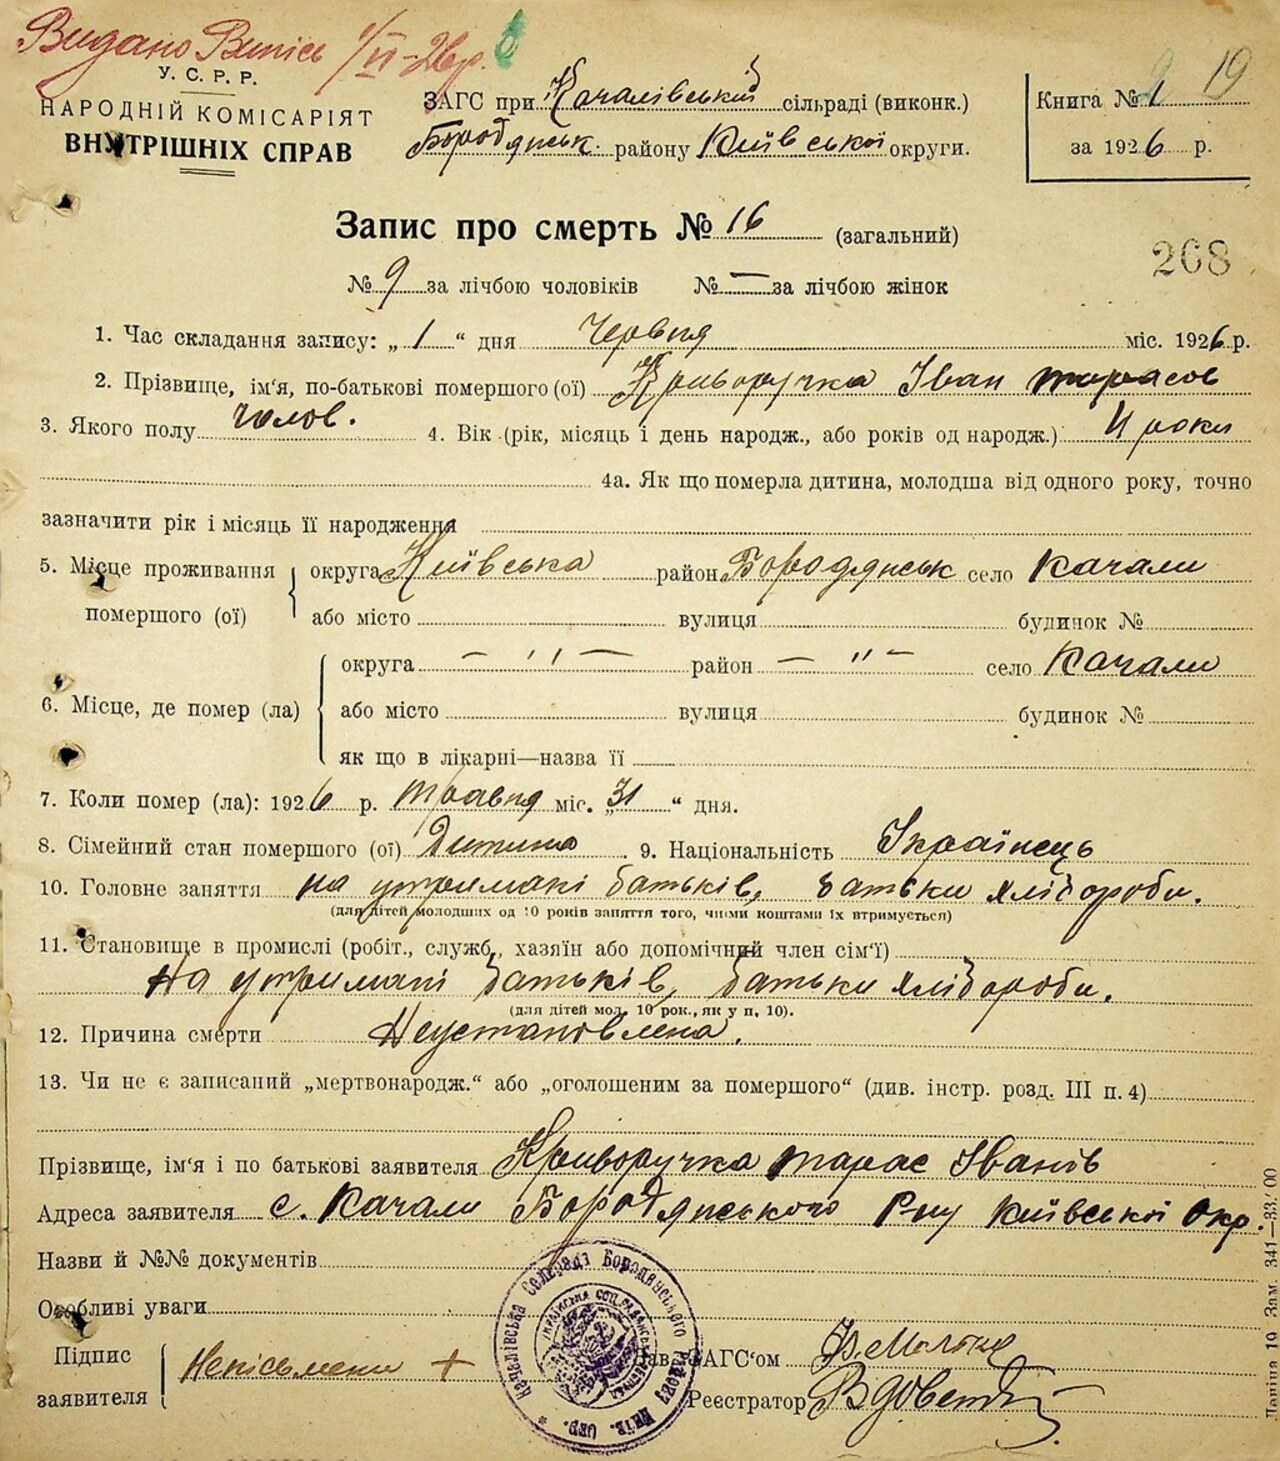 Видано Випісь 1/VI-26р.
У. С. Р. Р.
НАРОДНІЙ КОМІСАРІЯТ
ВНУТРІШНІХ СПРАВ
ЗАГС при Качалівській сільраді (виконк.)
Бородянськ. району Київської округи.
Книга № 1 19
за 1926 р.
Запис про смерть № 16 (загальний)
268
№ 9 за лічбою чоловіків № — за лічбою жінок
1. Час складання запису: „ 1 “ дня Червня міс. 1926 р.
2. Прізвище, ім'я, по-батькові помершого (ої) Криворучка Іван Тарасов
3. Якого полу чолов. 4. Вік (рік, місяць і день народж., або років од народж.) 4 роки
4а. Як що померла дитина, молодша від одного року, точно
зазначити рік і місяць її народження
5. Місце проживання помершого (ої) округа Київська район Бородянськ село Качали
або місто вулиця будинок №
6. Місце, де помер (ла) округа — „ — район — „ — село Качали
або місто вулиця будинок №
як що в лікарні—назва її
7. Коли помер (ла): 1926 р. травня міс. „31 “ дня.
8. Сімейний стан помершого (ої) Дитина 9. Національність Українець
10. Головне заняття на утримані батьків, батьки хлібороби.
(для дітей молодших од 10 років заняття того, чиїми коштами їх втримується)
11. Становище в промислі (робіт., служб., хазяїн або допомічний член сім'ї)
На утримані батьків, батьки хлібороби.
(для дітей мол. 10 рок., як у п. 10).
12. Причина смерти Неустановлена.
13. Чи не є записаний „мертвонародж.“ або „оголошеним за помершого“ (див. інстр. розд. III п. 4)
Прізвище, ім'я і по батькові заявителя Криворучка Тарас Іванів
Адреса заявителя с. Качали Бородянського Р-ну Київської Окр.
Назви й №№ документів
Особливі уваги
Підпис заявителя Неписьмени +
Зав. ЗАГС'ом
Реєстратор
Качалівська Сельрада Бородянського Району Київ. Окр.
Зам. 341—33/00